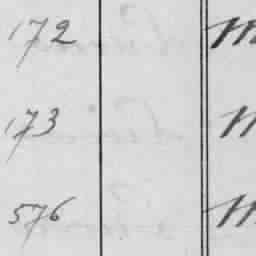 172 M
173 M
576 M